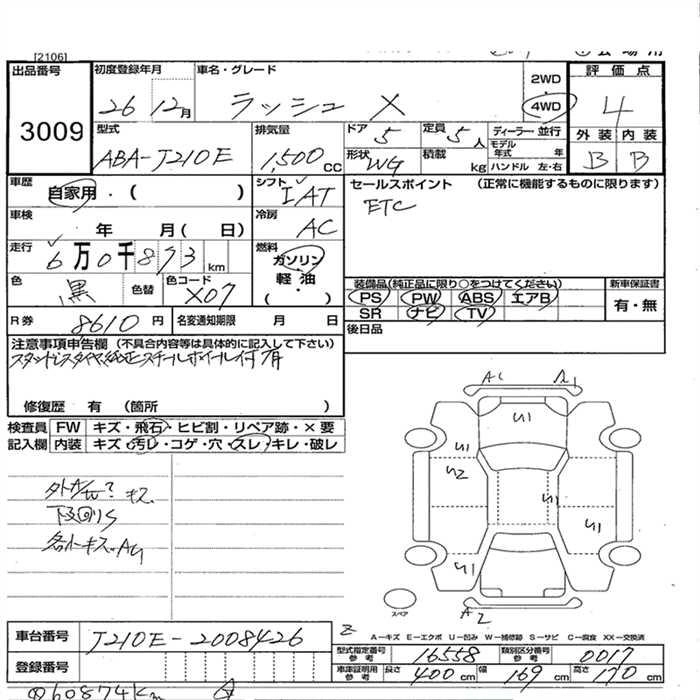 [2106]
出品番号 初度登録年月 車名・グレード 2WD 評価点
3009 26 12月 ラッシュ X 4WD 4
型式 排気量 ドア 5 定員 5人 ディーラー・並行 外装 内装
ABA-J210E 1,500 CC 形状 WG 積載 kg モデル年式 年 ハンドル 左・右 B B
車歴 自家用・( ) シフト IAT セールスポイント (正常に機能するものに限ります)
車検 年 月( 日) 冷房 AC ETC
走行 6万0千873km 燃料 ガソリン 軽油・( )
色 黒 色替 色コード X07 装備品(純正品に限り○をつけてください) 新車保証書
PS PW ABS エアB 有・無
SR ナビ TV
R券 8610円 名変通知期限 月 日 後日品
注意事項申告欄(不具合内容等は具体的に記入して下さい)
スタッドレスタイヤ、純正スチールホイール付有
修復歴 有(箇所 )
検査員 FW キズ・飛石・ヒビ割・リペア跡・×要
記入欄 内装 キズ・汚レ・コゲ・穴・スレ・キレ・破レ
キズ
下回りS
各小キズ、A4
A1
U1
U1
U2
U1
U1
U1
A2
スペア
A-キズ E-エクボ U-凹み W-補修跡 S-サビ C-腐食 XX-交換済
車台番号 J210E-2008426 型式指定番号 参考 16558 類別区分番号 参考 0017
登録番号 車庫証明用 参考 長さ 400cm 幅 169cm 高さ 170cm
60874km